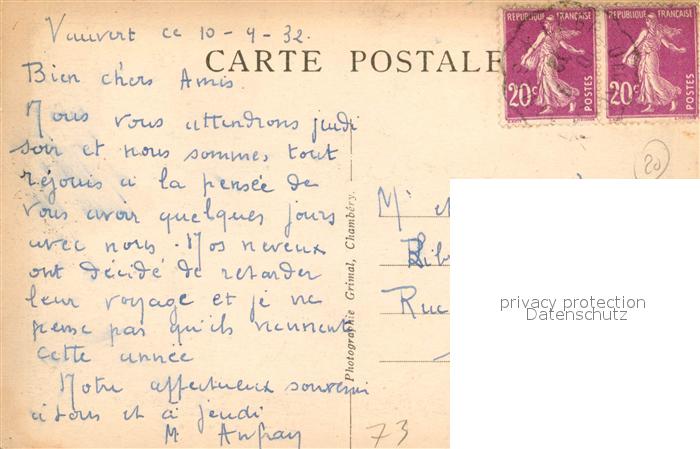 Vauvert ce 10-9-32.
CARTE POSTALE
REPUBLIQUE FRANÇAISE
20c
POSTES
REPUBLIQUE FRANÇAISE
20c
POSTES
Bien chers Amis
Nous vous attendrons jeudi
soir et nous sommes tout
réjouis à la pensée de
vous avoir quelques jours
avec nous. Nos neveux
ont décidé de retarder
leur voyage et je ne
pense pas qu'ils viennent
cette année
Notre affectueux souvenir
à tous et à jeudi
M
Photographie Grimal, Chambéry.
20
Mr
Rue
73
privacy protection
Datenschutz